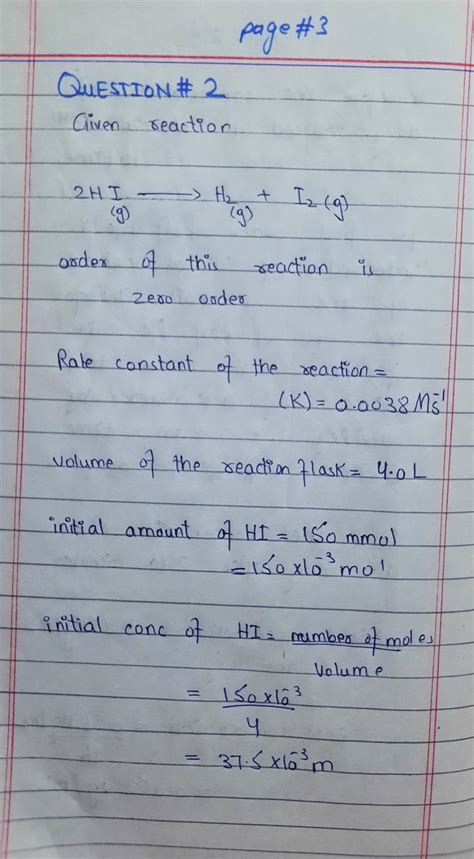 page#3
QUESTION# 2
Given reaction
2HI ⟶ H₂ + I₂(g)
(g) (g)
order of this reaction is
zero order
Rate constant of the reaction=
(K)= 0.0038 Ms⁻¹
volume of the reaction flask= 4.0L
initial amount of HI = 150 mmol
=150×10⁻³ mol
initial conc of HI= number of moles
Volume
= 150×10⁻³
4
= 37.5×10⁻³ m